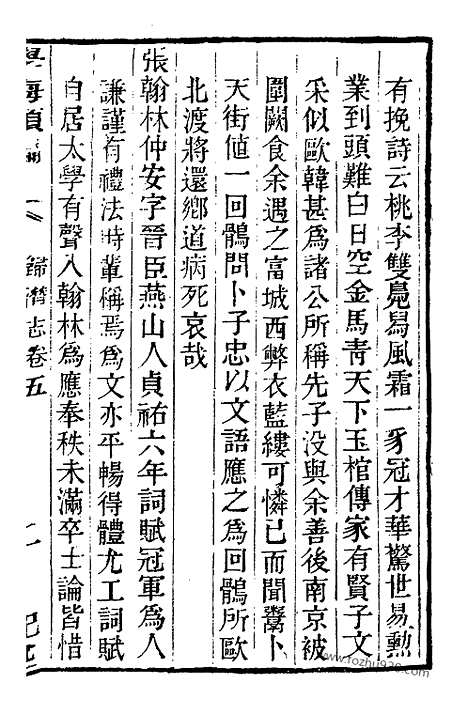 有挽詩云桃李雙鳧舄風霜一豸冠才華驚世易勳
業到頭難白日空金馬青天下玉棺傳家有賢子文
采似歐韓甚為諸公所稱先子没與余善後南京被
圍闕食余遇之富城西弊衣藍縷可憐已而聞鬻卜
天街值一回鶻問卜子忠以文語應之為回鶻所歐
北渡將還鄉道病死哀哉
張翰林仲安字晉臣燕山人貞祐六年詞賦冠軍為人
謙謹有禮法時輩稱焉為文亦平暢得體尤工詞賦
自居太學有聲入翰林為應奉秩未滿卒士論皆惜
歸潛志卷五
www.fozhu920.com